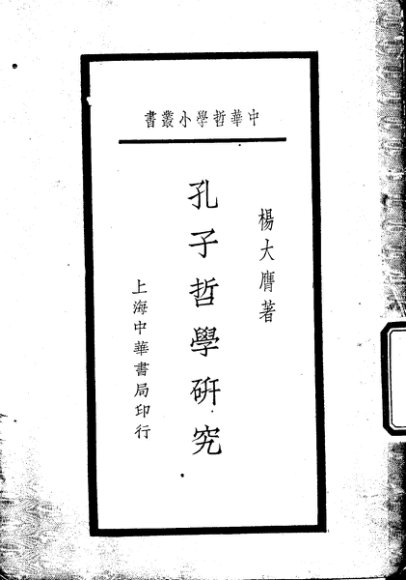 中華哲學小叢書
楊大膺著
孔子哲學研究
上海中華書局印行